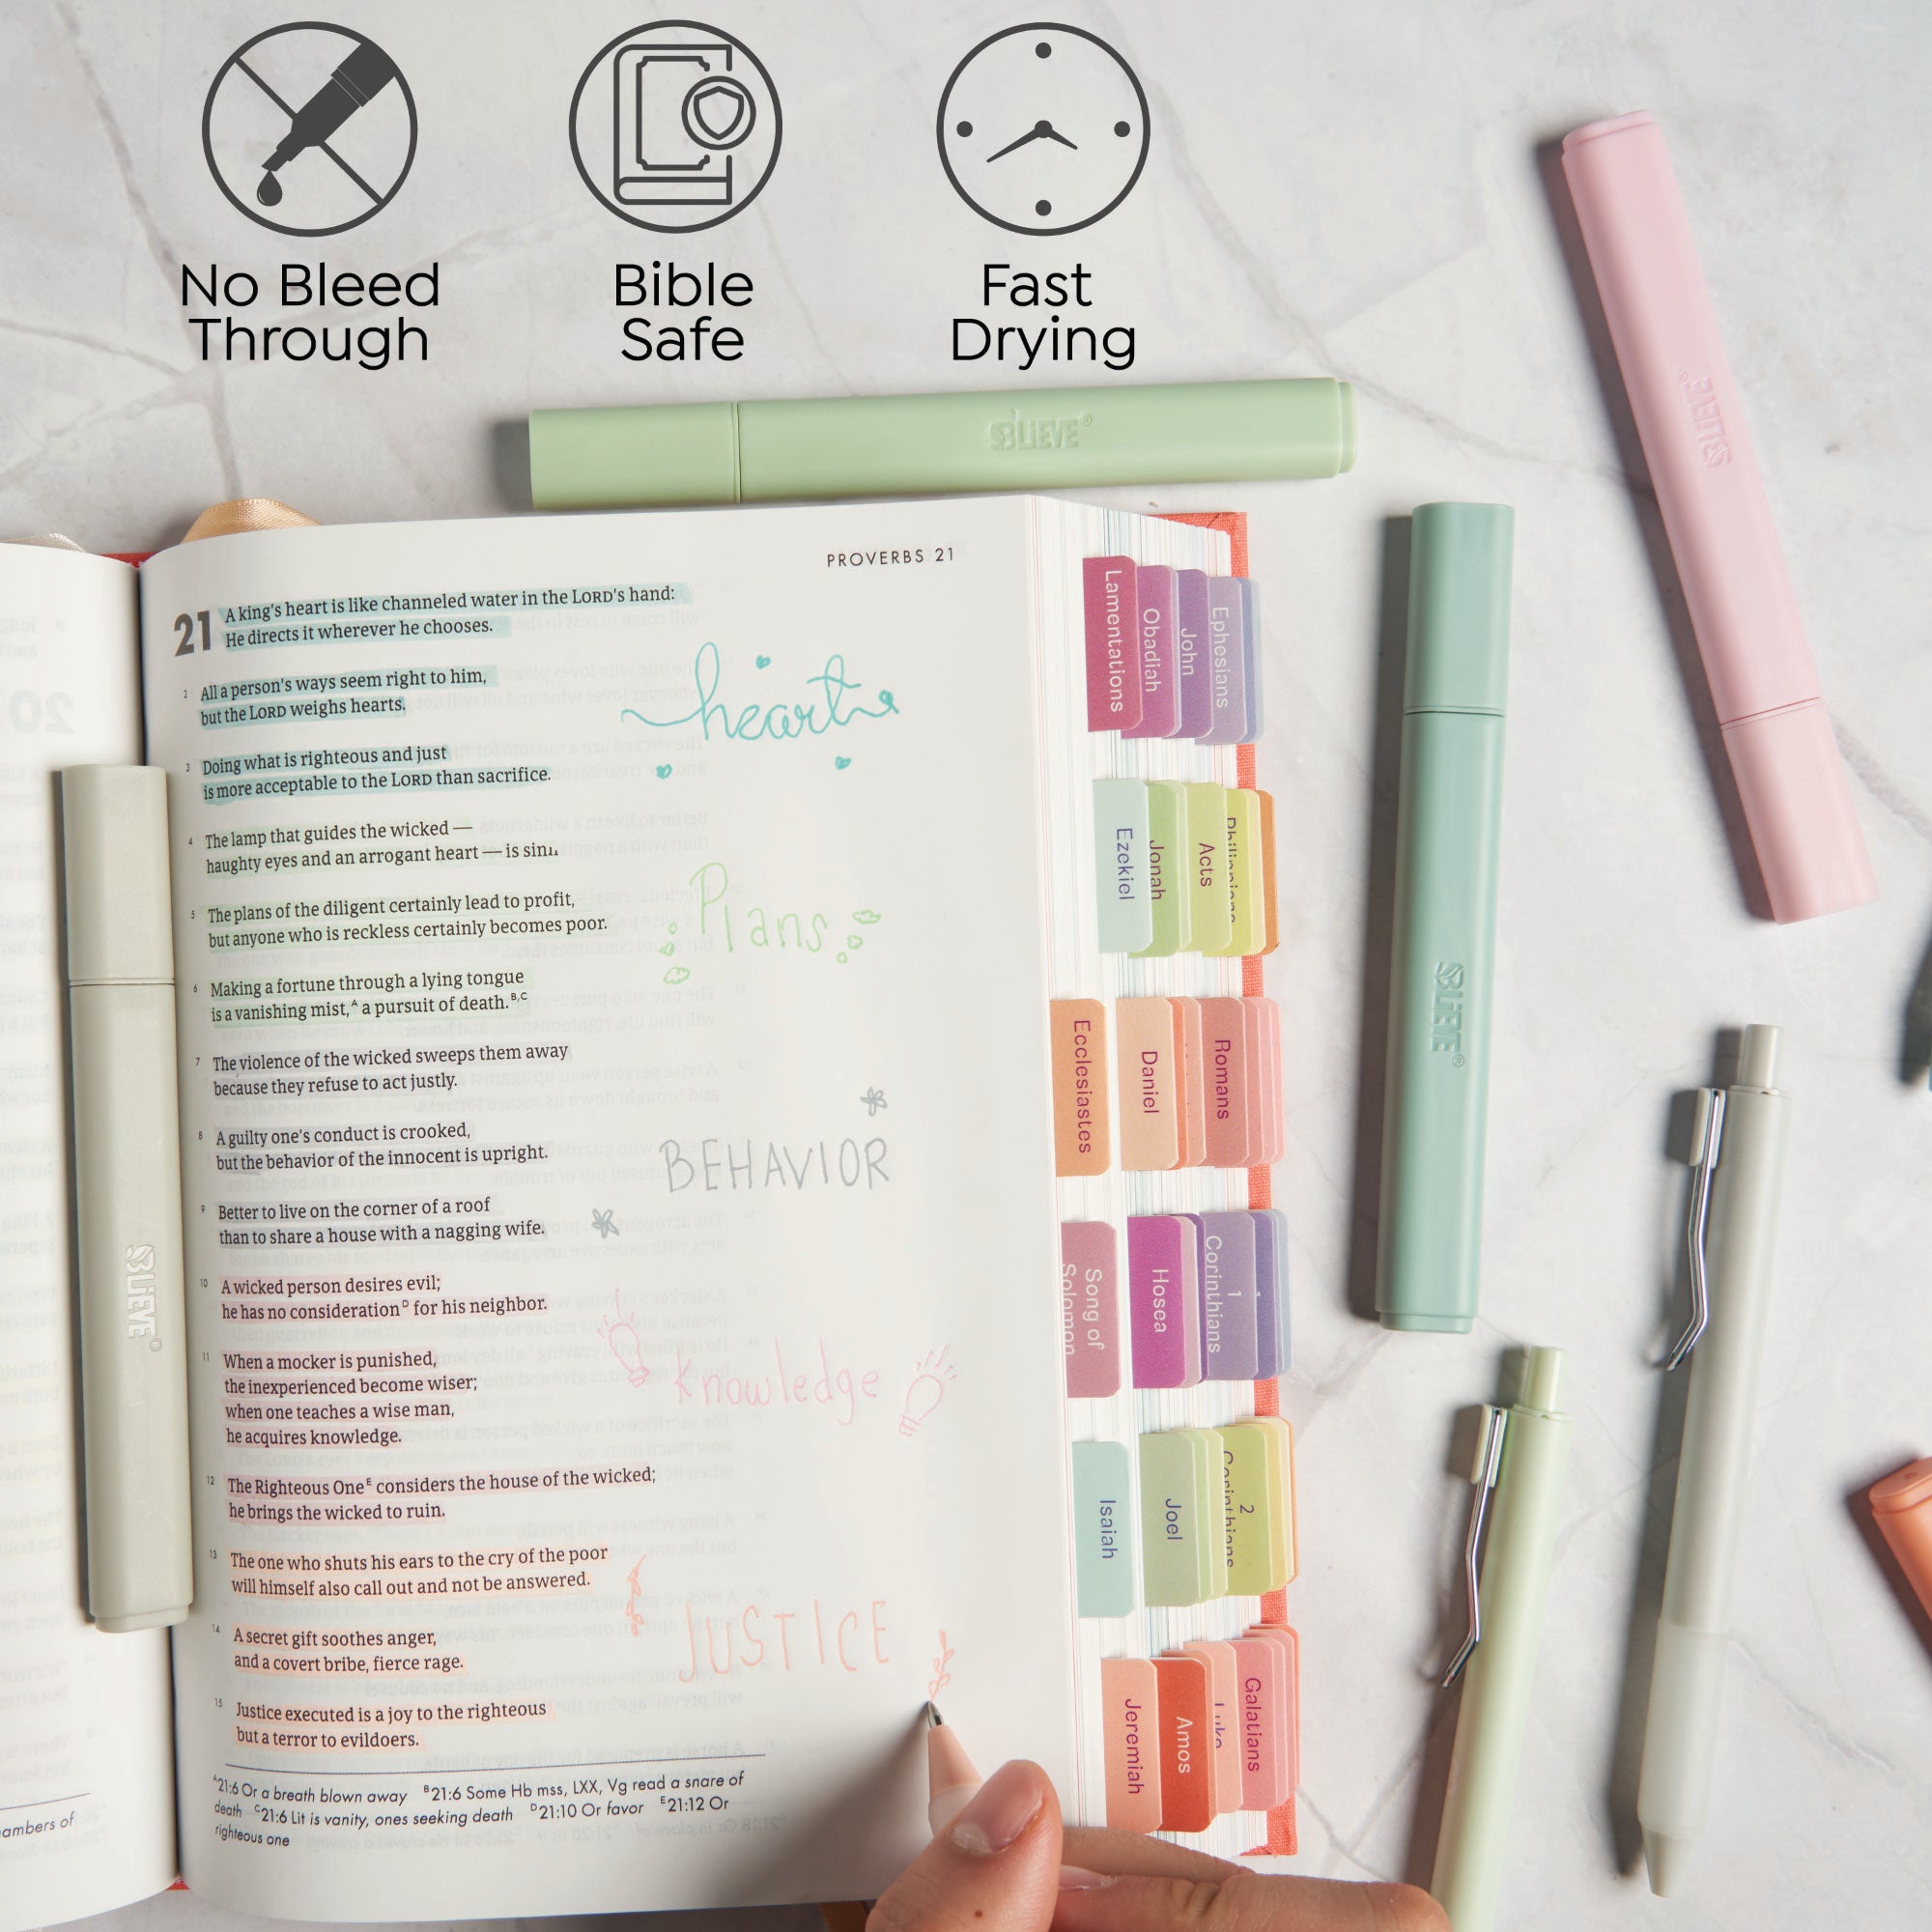 No Bleed
Through
Bible
Safe
Fast
Drying
BLiEVE®
BLiEVE®
BLiEVE®
BLiEVE®
PROVERBS 21
21 A king's heart is like channeled water in the LORD's hand:
He directs it wherever he chooses.
2 All a person's ways seem right to him,
but the LORD weighs hearts.
3 Doing what is righteous and just
is more acceptable to the LORD than sacrifice.
4 The lamp that guides the wicked —
haughty eyes and an arrogant heart — is sin.
5 The plans of the diligent certainly lead to profit,
but anyone who is reckless certainly becomes poor.
6 Making a fortune through a lying tongue
is a vanishing mist,ᴬ a pursuit of death.ᴮ,ᶜ
7 The violence of the wicked sweeps them away
because they refuse to act justly.
8 A guilty one's conduct is crooked,
but the behavior of the innocent is upright.
9 Better to live on the corner of a roof
than to share a house with a nagging wife.
10 A wicked person desires evil;
he has no considerationᴰ for his neighbor.
11 When a mocker is punished,
the inexperienced become wiser;
when one teaches a wise man,
he acquires knowledge.
12 The Righteous Oneᴱ considers the house of the wicked;
he brings the wicked to ruin.
13 The one who shuts his ears to the cry of the poor
will himself also call out and not be answered.
14 A secret gift soothes anger,
and a covert bribe, fierce rage.
15 Justice executed is a joy to the righteous
but a terror to evildoers.
ᴬ21:6 Or a breath blown away ᴮ21:6 Some Hb mss, LXX, Vg read a snare of
death ᶜ21:6 Lit is vanity, ones seeking death ᴰ21:10 Or favor ᴱ21:12 Or
righteous one
heart
Plans
BEHAVIOR
Knowledge
JUSTICE
Lamentations
Obadiah
John
Ephesians
Ezekiel
Jonah
Acts
Philippians
Ecclesiastes
Daniel
Romans
Song of
Solomon
Hosea
1
Corinthians
Isaiah
Joel
2
Corinthians
Jeremiah
Amos
Luke
Galatians
20
ambers of